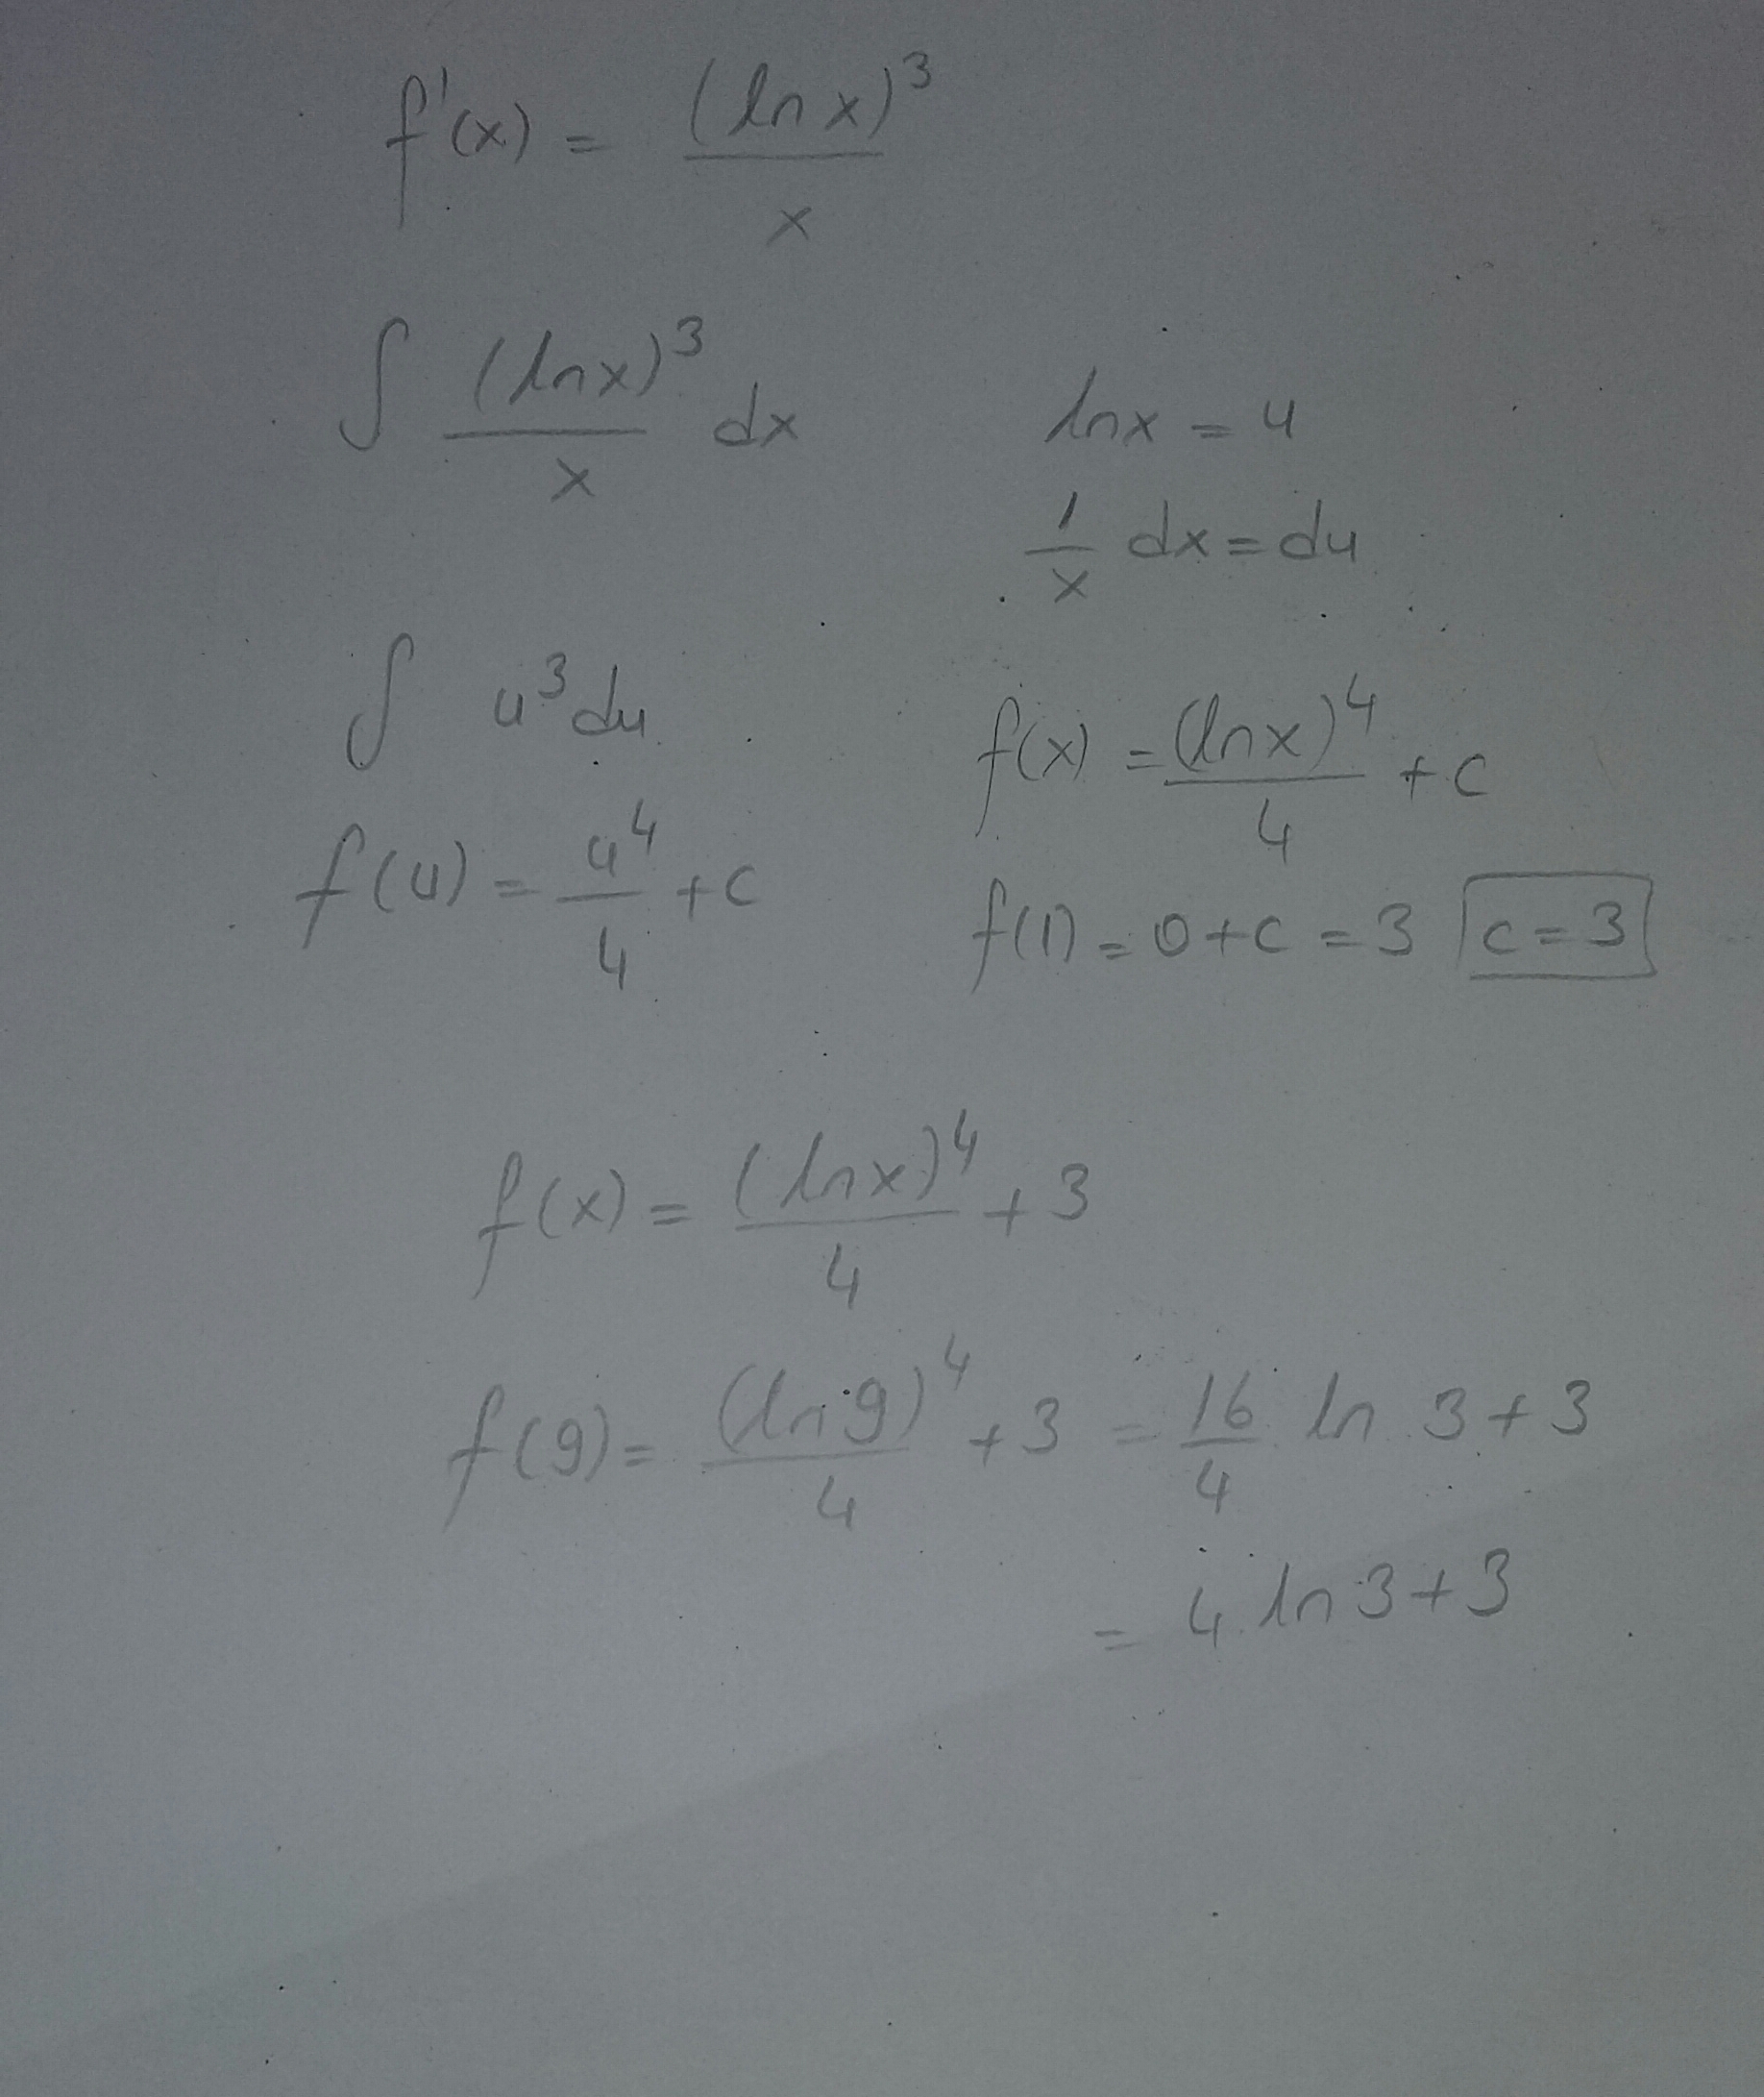 f'(x) = (ln x)³ / x
∫ (lnx)³ / x dx
lnx = u
1/x dx = du
∫ u³ du
f(u) = u⁴/4 + c
f(x) = (lnx)⁴ / 4 + c
f(1) = 0 + c = 3 c = 3
f(x) = (lnx)⁴ / 4 + 3
f(9) = (ln 9)⁴ / 4 + 3 = 16/4 ln 3 + 3
= 4 ln 3 + 3